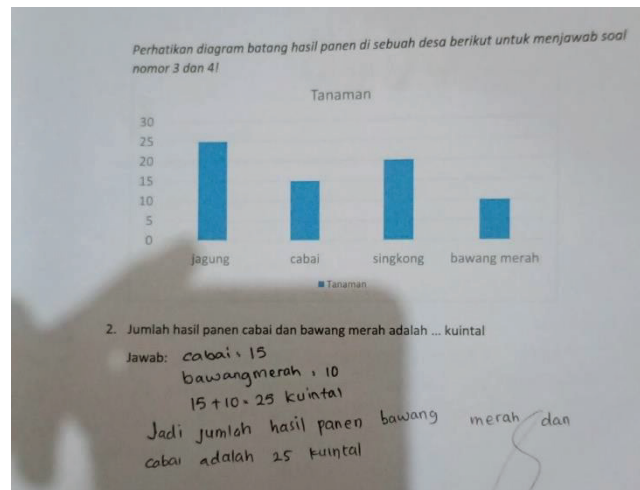 Perhatikan diagram batang hasil panen di sebuah desa berikut untuk menjawab soal
nomor 3 dan 4!
Tanaman
30
25
20
15
10
5
0
jagung cabai singkong bawang merah
Tanaman
2. Jumlah hasil panen cabai dan bawang merah adalah ... kuintal
Jawab: cabai : 15
bawang merah : 10
15 + 10 = 25 kuintal
Jadi jumlah hasil panen bawang merah dan
cabai adalah 25 kuintal